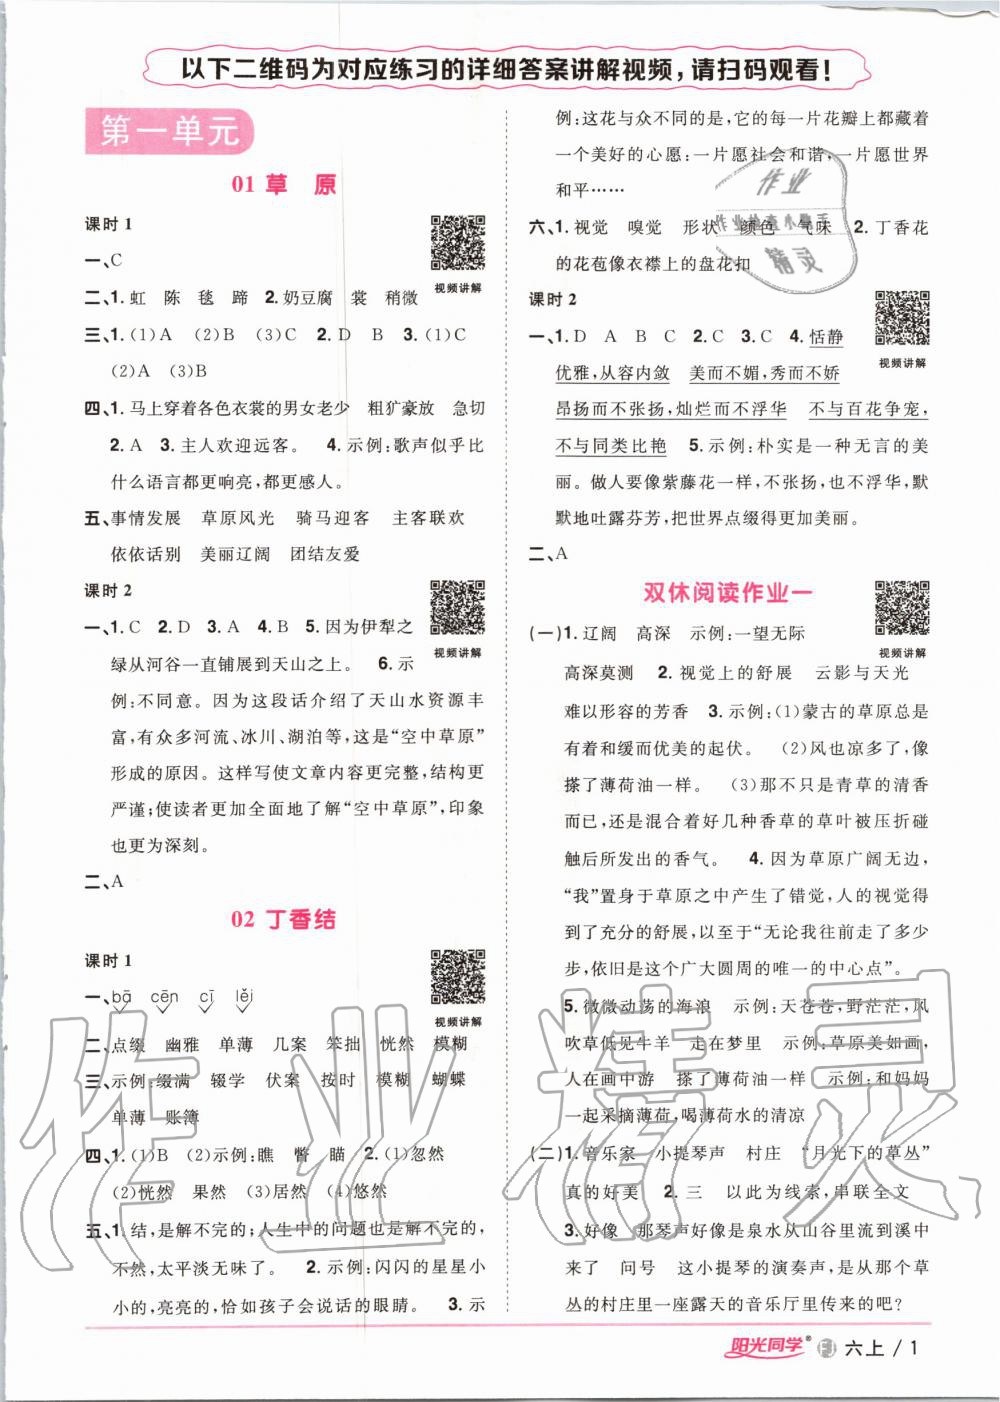 以下二维码为对应练习的详细答案讲解视频，请扫码观看！
第一单元
01 草　原
课时1
一、C
视频讲解
二、1.虹　陈　毯　蹄　2.奶豆腐　裳　稍微
三、1.(1)A　(2)B　(3)C　2.D　B　3.(1)C
(2)A　(3)B
四、1.马上穿着各色衣裳的男女老少　粗犷豪放　急切
2.A　3.主人欢迎远客。　4.示例:歌声似乎比
什么语言都更响亮，都更有感召力。
五、事情发展　草原风光　骑马迎客　主客联欢
依依话别　美丽辽阔　团结友爱
课时2
一、1.C　2.D　3.A　4.A　5.因为伊犁之
绿从河谷一直铺展到天山之上。　6.示
视频讲解
例:不同意。因为这段话介绍了天山水资源丰
富，有众多河流、冰川、湖泊等，这是“空中草原”
形成的原因。这样写使文章内容更完整，结构更
严谨；使读者更加全面地了解“空中草原”，印象
也更为深刻。
二、A
02 丁香结
课时1
一、bā　cēn　cī　lěi
视频讲解
二、点缀　幽雅　单薄　几案　笨拙　恍然　模糊
三、示例:缀满　辍学　伏案　按时　模糊　蝴蝶
单薄　账簿
四、1.(1)B　(2)示例:瞧　瞥　瞄　2.(1)忽然
(2)恍然　果然　(3)居然　(4)悠然
五、1.结，是解不完的；人生中的问题也是解不完的，
不然，太平淡无味了。　2.示例:闪闪的星星小
小的，亮亮的，恰如孩子会说话的眼睛。　3.示
例:这花与众不同的是，它的每一片花瓣上都藏着
一个美好的心愿:一片愿社会和谐，一片愿世界
和平……
六、1.视觉　嗅觉　形状　颜色　气味　2.丁香花
的花苞像衣襟上的盘花扣
课时2
一、1.D　A　B　C　2.C　3.C　4.恬静
优雅，从容内敛　美而不媚，秀而不娇
视频讲解
昂扬而不张扬，灿烂而不浮华　不与百花争宠，
不与同类比艳　5.示例:朴实是一种无言的美
丽。做人要像紫藤花一样，不张扬，也不浮华，默
默地吐露芬芳，把世界点缀得更加美丽。
二、A
双休阅读作业一
(一)1.辽阔　高深　示例:一望无际
高深莫测　2.视觉上的舒展　云影与天光
视频讲解
难以形容的芳香　3.示例:(1)蒙古的草原总是
有着和缓而优美的起伏。　(2)风也凉多了，像
搽了薄荷油一样。　(3)那不只是青草的清香
而已，还是混合着好几种香草的草叶被压折碰
触后所发出的香气。　4.因为草原广阔无边，
“我”置身于草原之中产生了错觉，人的视觉得到
了充分的舒展，以至于“无论我往前走了多少
步，依旧是这个广大圆周的唯一的中心点”。
5.微微动荡的海浪　示例:天苍苍，野茫茫，风
吹草低见牛羊　走在梦里　示例:草原美如画，
人在画中游　搽了薄荷油一样　示例:和妈妈
一起采摘薄荷，喝薄荷水的清凉
(二)1.音乐家　小提琴声　村庄　“月光下的草丛”
真的好美　2.三　以此为线索，串联全文
3.好像　那琴声好像是泉水从山谷里流到溪中
来了　问号　这小提琴的演奏声，是从那个草
丛的村庄里一座露天的音乐厅里传来的吧？
作业
作业检查小助手
精灵
作业精灵
阳光同学® FJ 六上 / 1